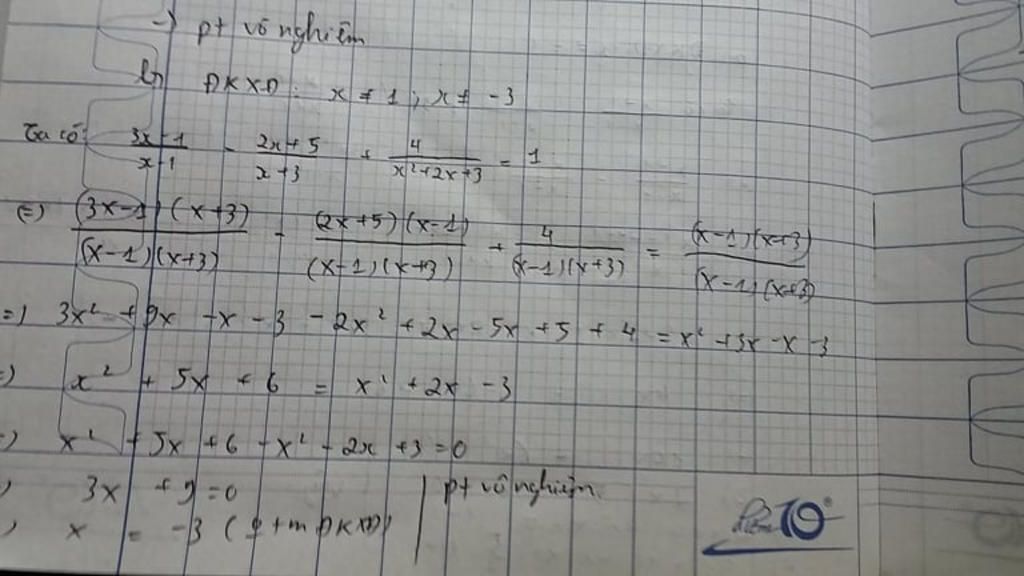 -) pt vô nghiệm
b, ĐKXĐ: x ≠ 1; x ≠ -3
Ta có: (3x-1)/(x-1) - (2x+5)/(x+3) + 4/(x²+2x+3) = 1
(=) (3x-1)(x+3)/(x-1)(x+3) - (2x+5)(x-1)/(x-1)(x+3) + 4/(x-1)(x+3) = (x-1)(x+3)/(x-1)(x+3)
=) 3x² + 9x - x - 3 - 2x² + 2x - 5x + 5 + 4 = x² + 3x - x - 3
=) x² + 5x + 6 = x² + 2x - 3
=) x² + 5x + 6 - x² - 2x + 3 = 0
) 3x + 9 = 0 | pt vô nghiệm
) x = -3 (ĐKXĐ)